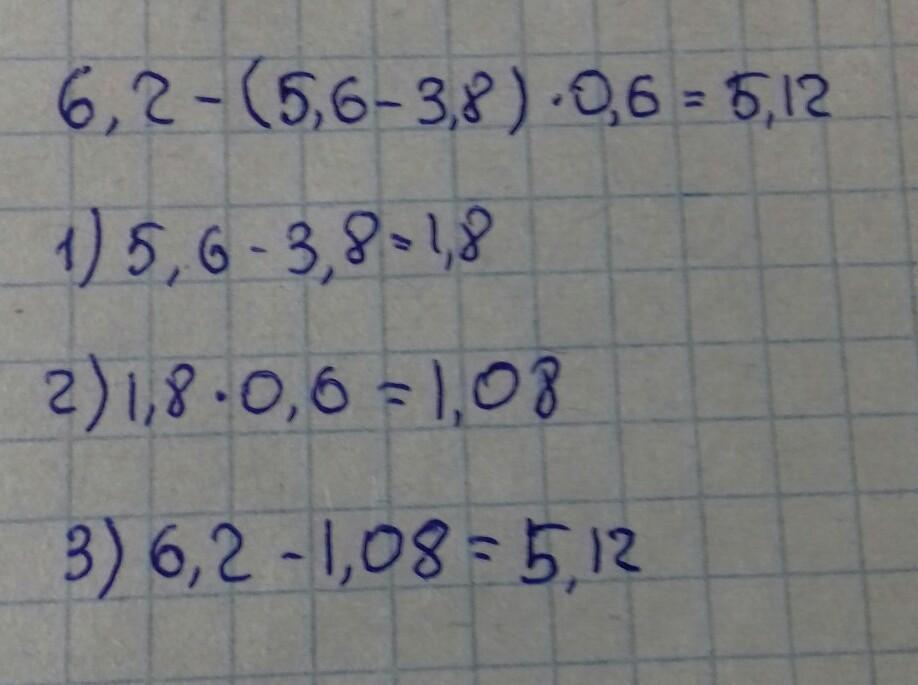 6,2-(5,6-3,8)·0,6=5,12
1) 5,6-3,8=1,8
2) 1,8·0,6=1,08
3) 6,2-1,08=5,12